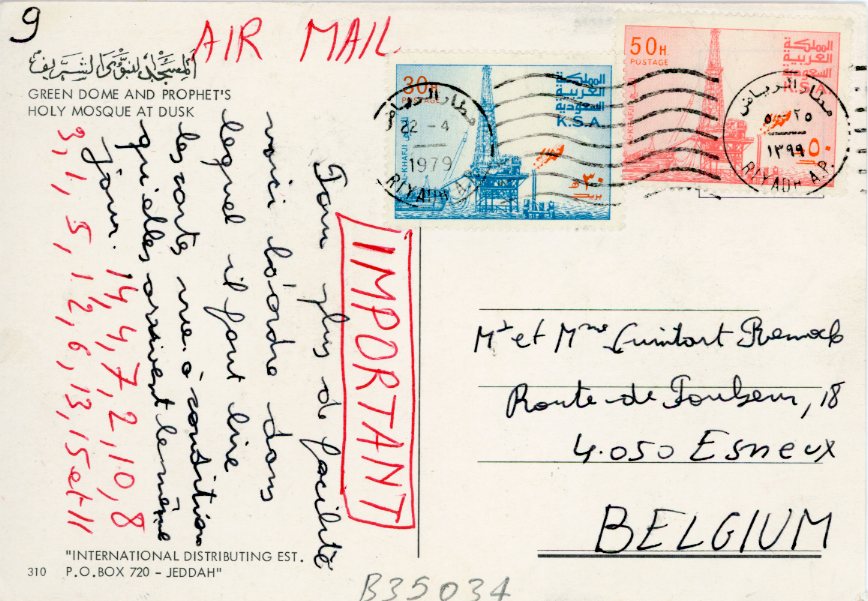 9
AIR MAIL
المسجد النبوي الشريف
GREEN DOME AND PROPHET'S
HOLY MOSQUE AT DUSK
IMPORTANT
Pour plus de facilité
voici l'ordre dans
lequel il faut lire
les cartes vue à condition
qu'elles arrivent le même
jour. 14, 4, 7, 2, 10, 8
3, 1, 5, 12, 6, 13, 15 et 11
"INTERNATIONAL DISTRIBUTING EST.
310 P.O.BOX 720 - JEDDAH"
30H
POSTAGE
المملكة
العربية
السعودية
K.S.A
٣٠
مطار الرياض
22 -4
1979
RIYADH A.P.
50H
POSTAGE
المملكة
العربية
السعودية
٥٠
مطار الرياض
١٣٩٩
RIYADH A.P.
Mr et Mme
Route de 18
4.050 Esneux
BELGIUM
B35034